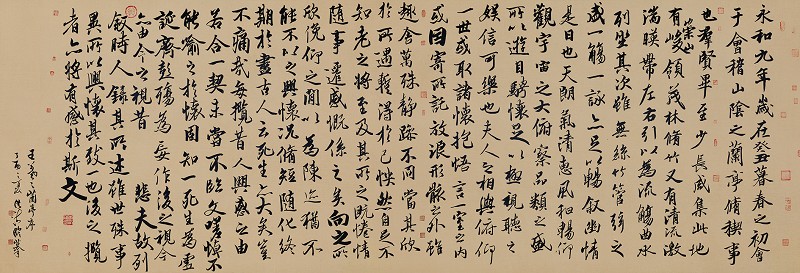 永和九年歲在癸丑暮春之初會
于會稽山陰之蘭亭脩稧事
也羣賢畢至少長咸集此地
有崇山峻領茂林脩竹又有清流激
湍暎帶左右引以為流觴曲水
列坐其次雖無絲竹管弦之
盛一觴一詠亦足以暢叙幽情
是日也天朗氣清惠風和暢仰
觀宇宙之大俯察品類之盛
所以遊目騁懷足以極視聽之
娛信可樂也夫人之相與俯仰
一世或取諸懷抱悟言一室之內
或因寄所託放浪形骸之外雖
趣舍萬殊靜躁不同當其欣
於所遇暫得於己快然自足不
知老之將至及其所之既惓情
隨事遷感慨係之矣向之所
欣俛仰之閒以為陳迹猶不
能不以之興懷況脩短隨化終
期於盡古人云死生亦大矣豈
不痛哉每攬昔人興感之由
若合一契未嘗不臨文嗟悼不
能喻之於懷固知一死生為虛
誕齊彭殤為妄作後之視今
亦由今之視昔悲夫故列
叙時人錄其所述雖世殊事
異所以興懷其致一也後之攬
者亦將有感於斯文
王羲之蘭亭序